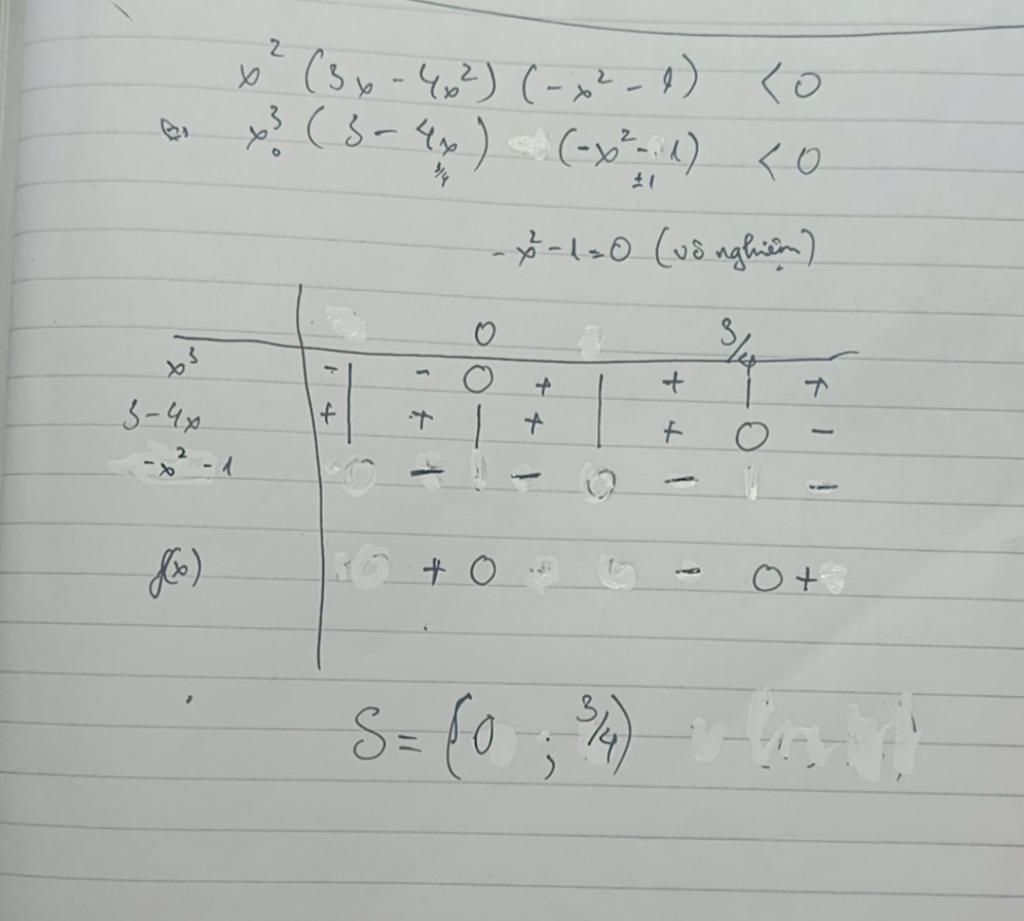 x² (3x - 4x²) (-x² - 1) < 0
⇔ x³ (3 - 4x) (-x² - 1) < 0
0 3/4 ±1
-x² - 1 = 0 (vô nghiệm)
0 3/4
x³ - | - 0 + | + | +
3 - 4x + | + | + | + 0 -
-x² - 1 0 - | - 0 - | -
f(x) + 0 - 0 +
S = (0 ; 3/4)